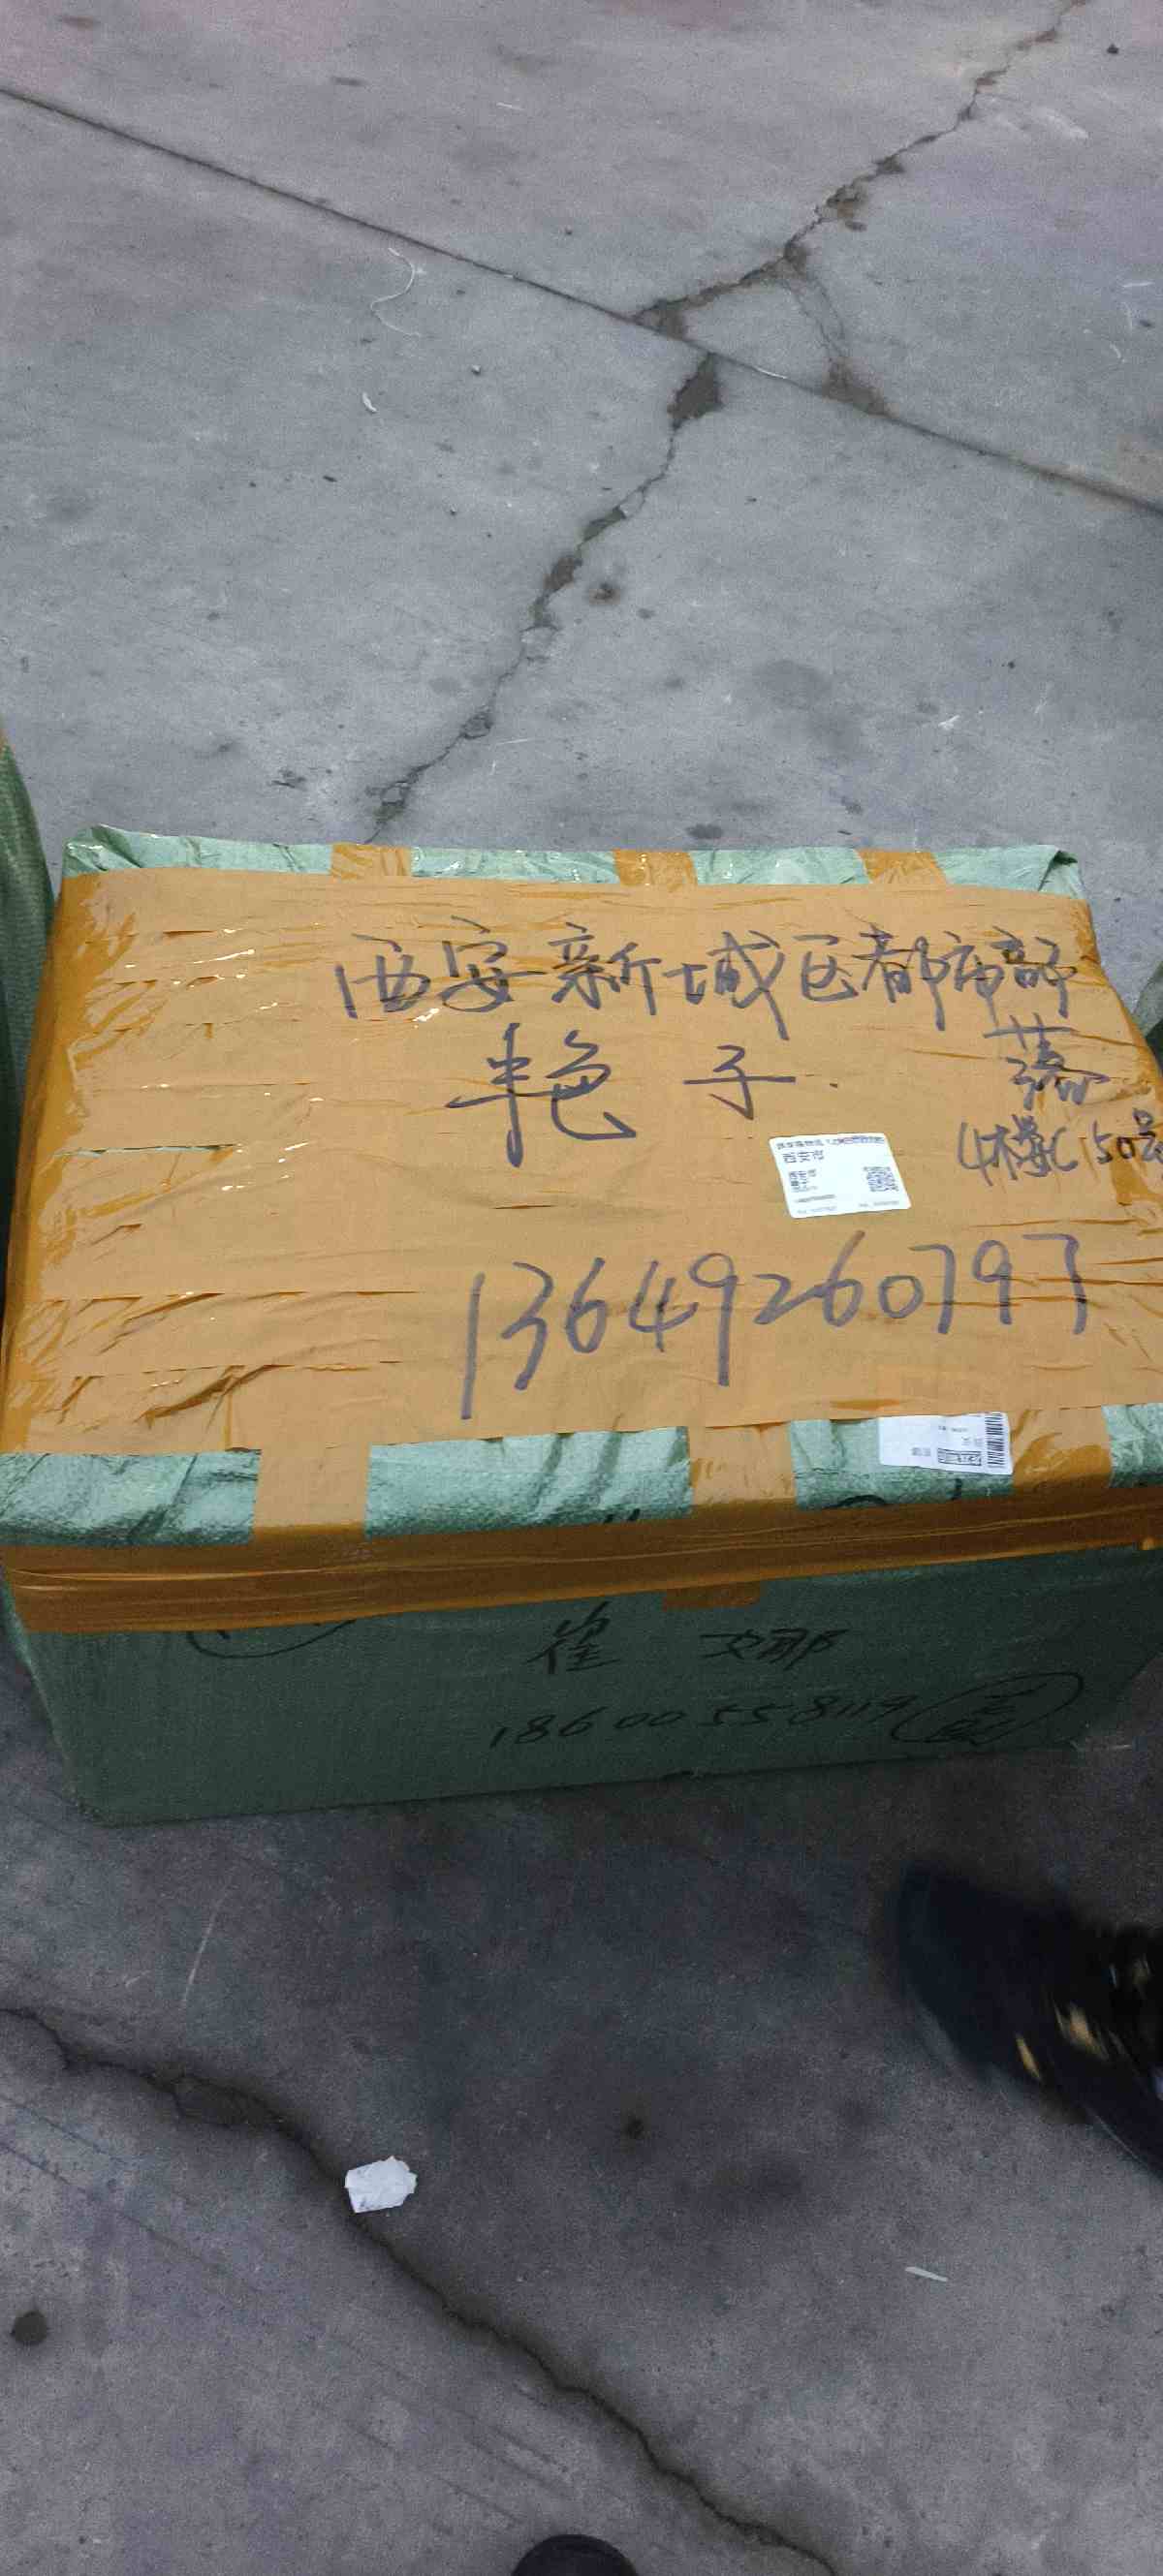 西安新城区都市部落
艳子
4楼C150号
西安市
13649260797
崔娜
18600558119